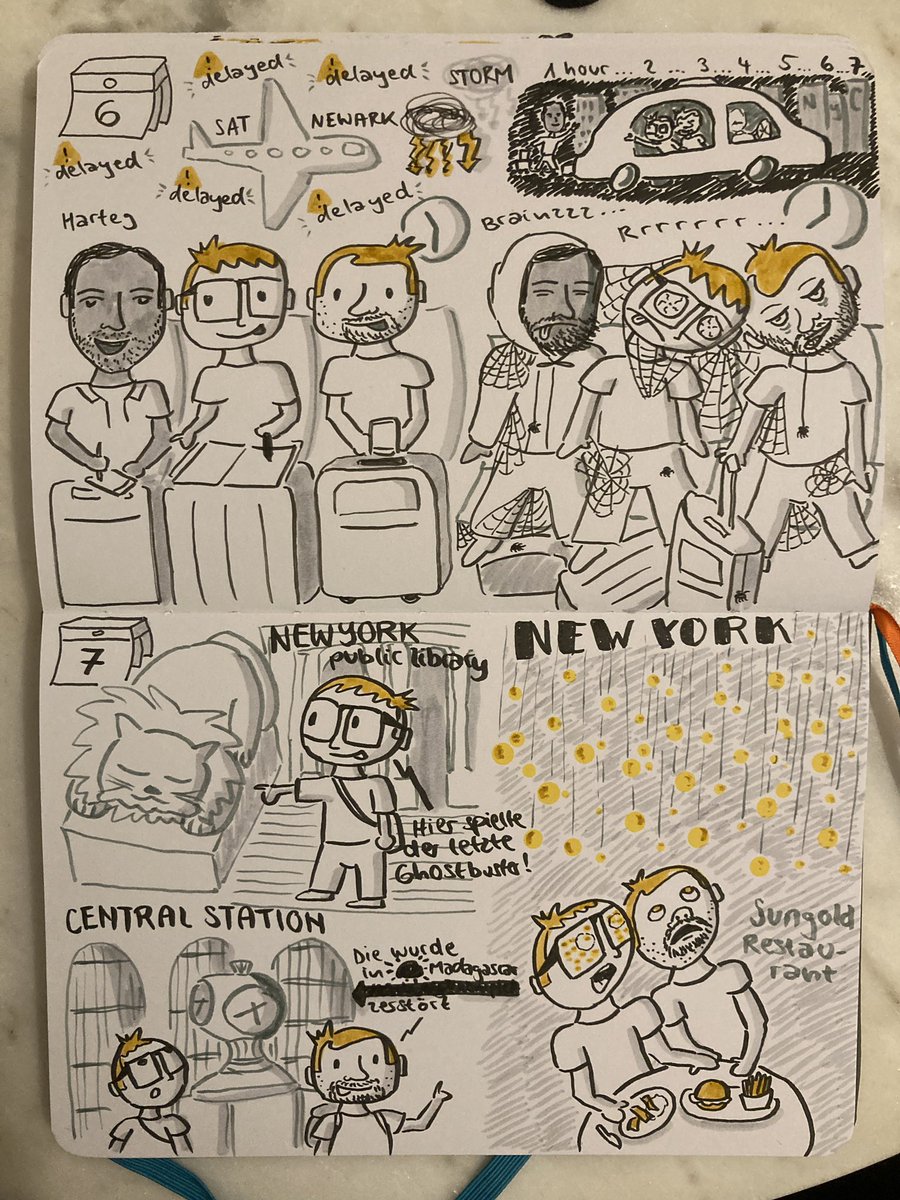 6
delayed
delayed
delayed
delayed
delayed
SAT
NEWARK
STORM
1 hour ... 2 ... 3 ... 4 ... 5 ... 6 ... 7
NYC
Harteg
Brainzzz...
Rrrrrrr...
7
NEW YORK
public library
Hier spielte
der letzte
Ghostbuster!
CENTRAL STATION
Die wurde
in Madagascar
zerstört
NEW YORK
Sungold
Restau-
rant